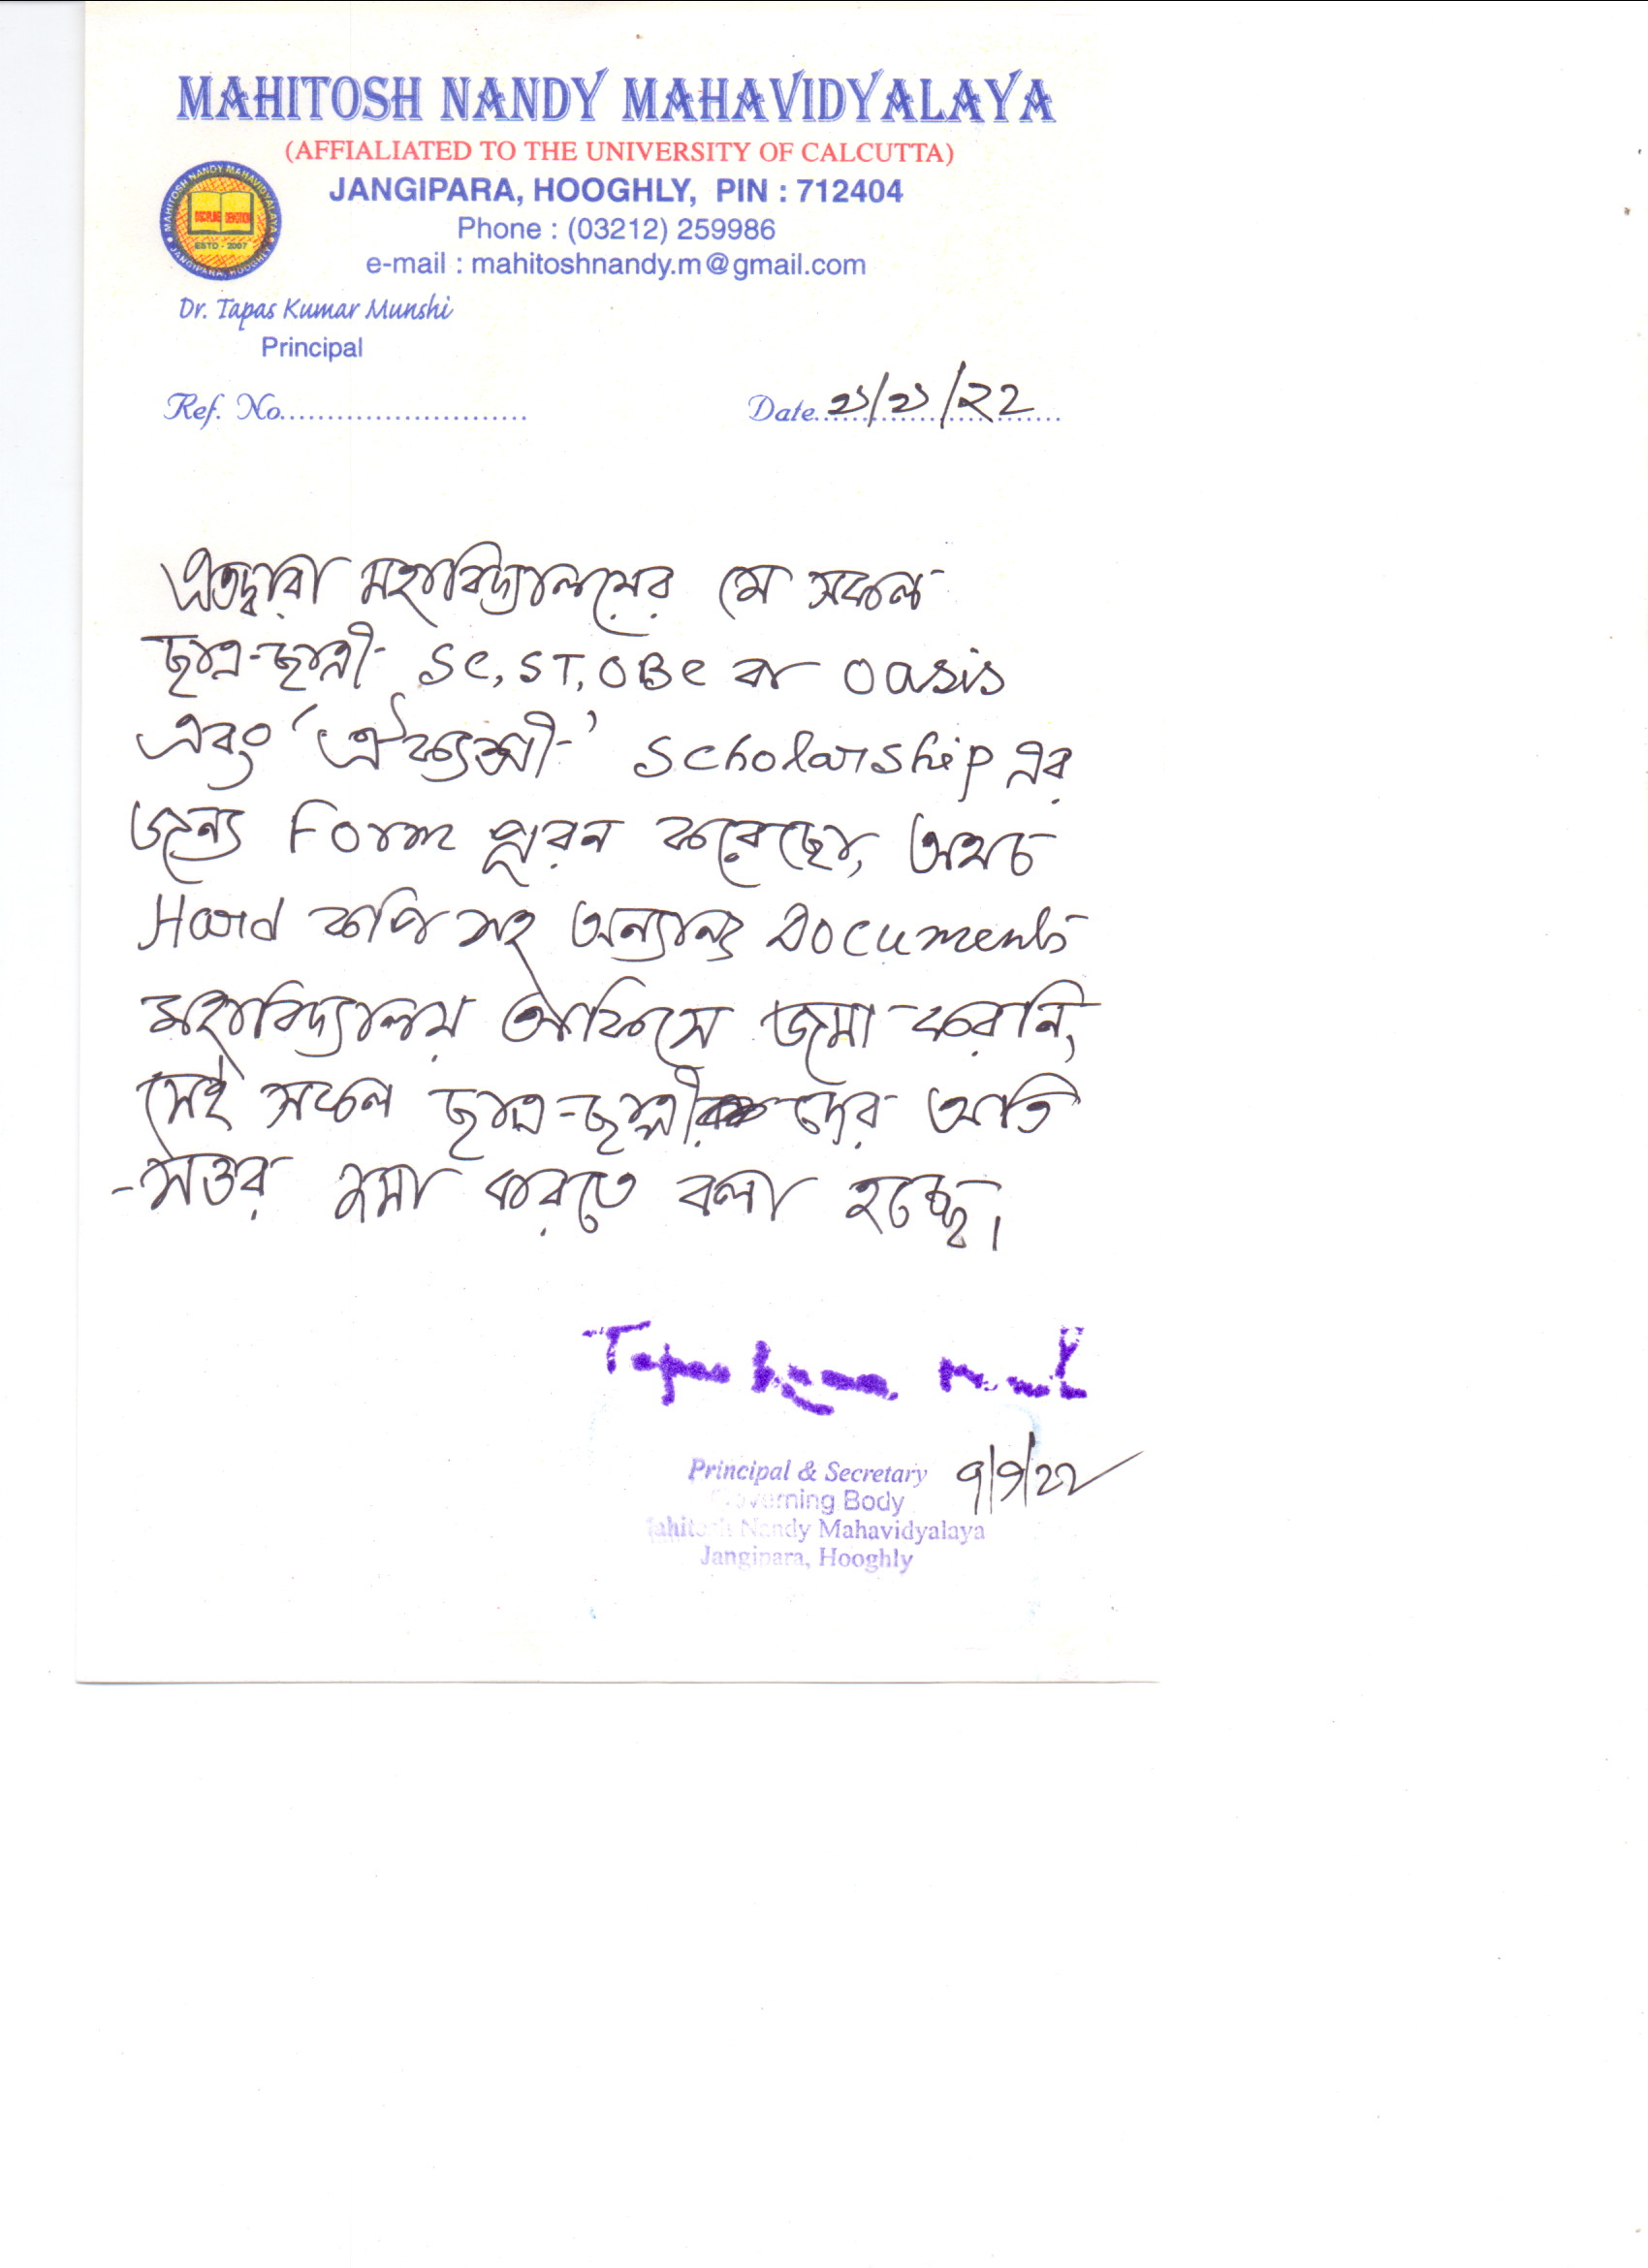 MAHITOSH NANDY MAHAVIDYALAYA
(AFFIALIATED TO THE UNIVERSITY OF CALCUTTA)
JANGIPARA, HOOGHLY, PIN : 712404
Phone : (03212) 259986
e-mail : mahitoshnandy.m@gmail.com
MAHITOSH NANDY MAHAVIDYALAYA
DISCIPLINE DEVOTION
ESTD - 2007
JANGIPARA, HOOGHLY
Dr. Tapas Kumar Munshi
Principal
Ref. No.......................... Date
এতদ্বারা মহাবিদ্যালয়ের যে সকল
ছাত্র-ছাত্রী SC, ST, OBC বা Oasis
এবং 'ঐক্যশ্রী' Scholarship এর
জন্য Form পূরন করেছে, অথচ
Hard কপি সহ অন্যান্য Documents
মহাবিদ্যালয় অফিসে জমা করেনি,
সেই সকল ছাত্র-ছাত্রী দের অতি
-সত্তর জমা করতে বলা হচ্ছে।
Tapas Kumar Munshi
Principal & Secretary 9/9/22
Governing Body
Mahitosh Nandy Mahavidyalaya
Jangipara, Hooghly